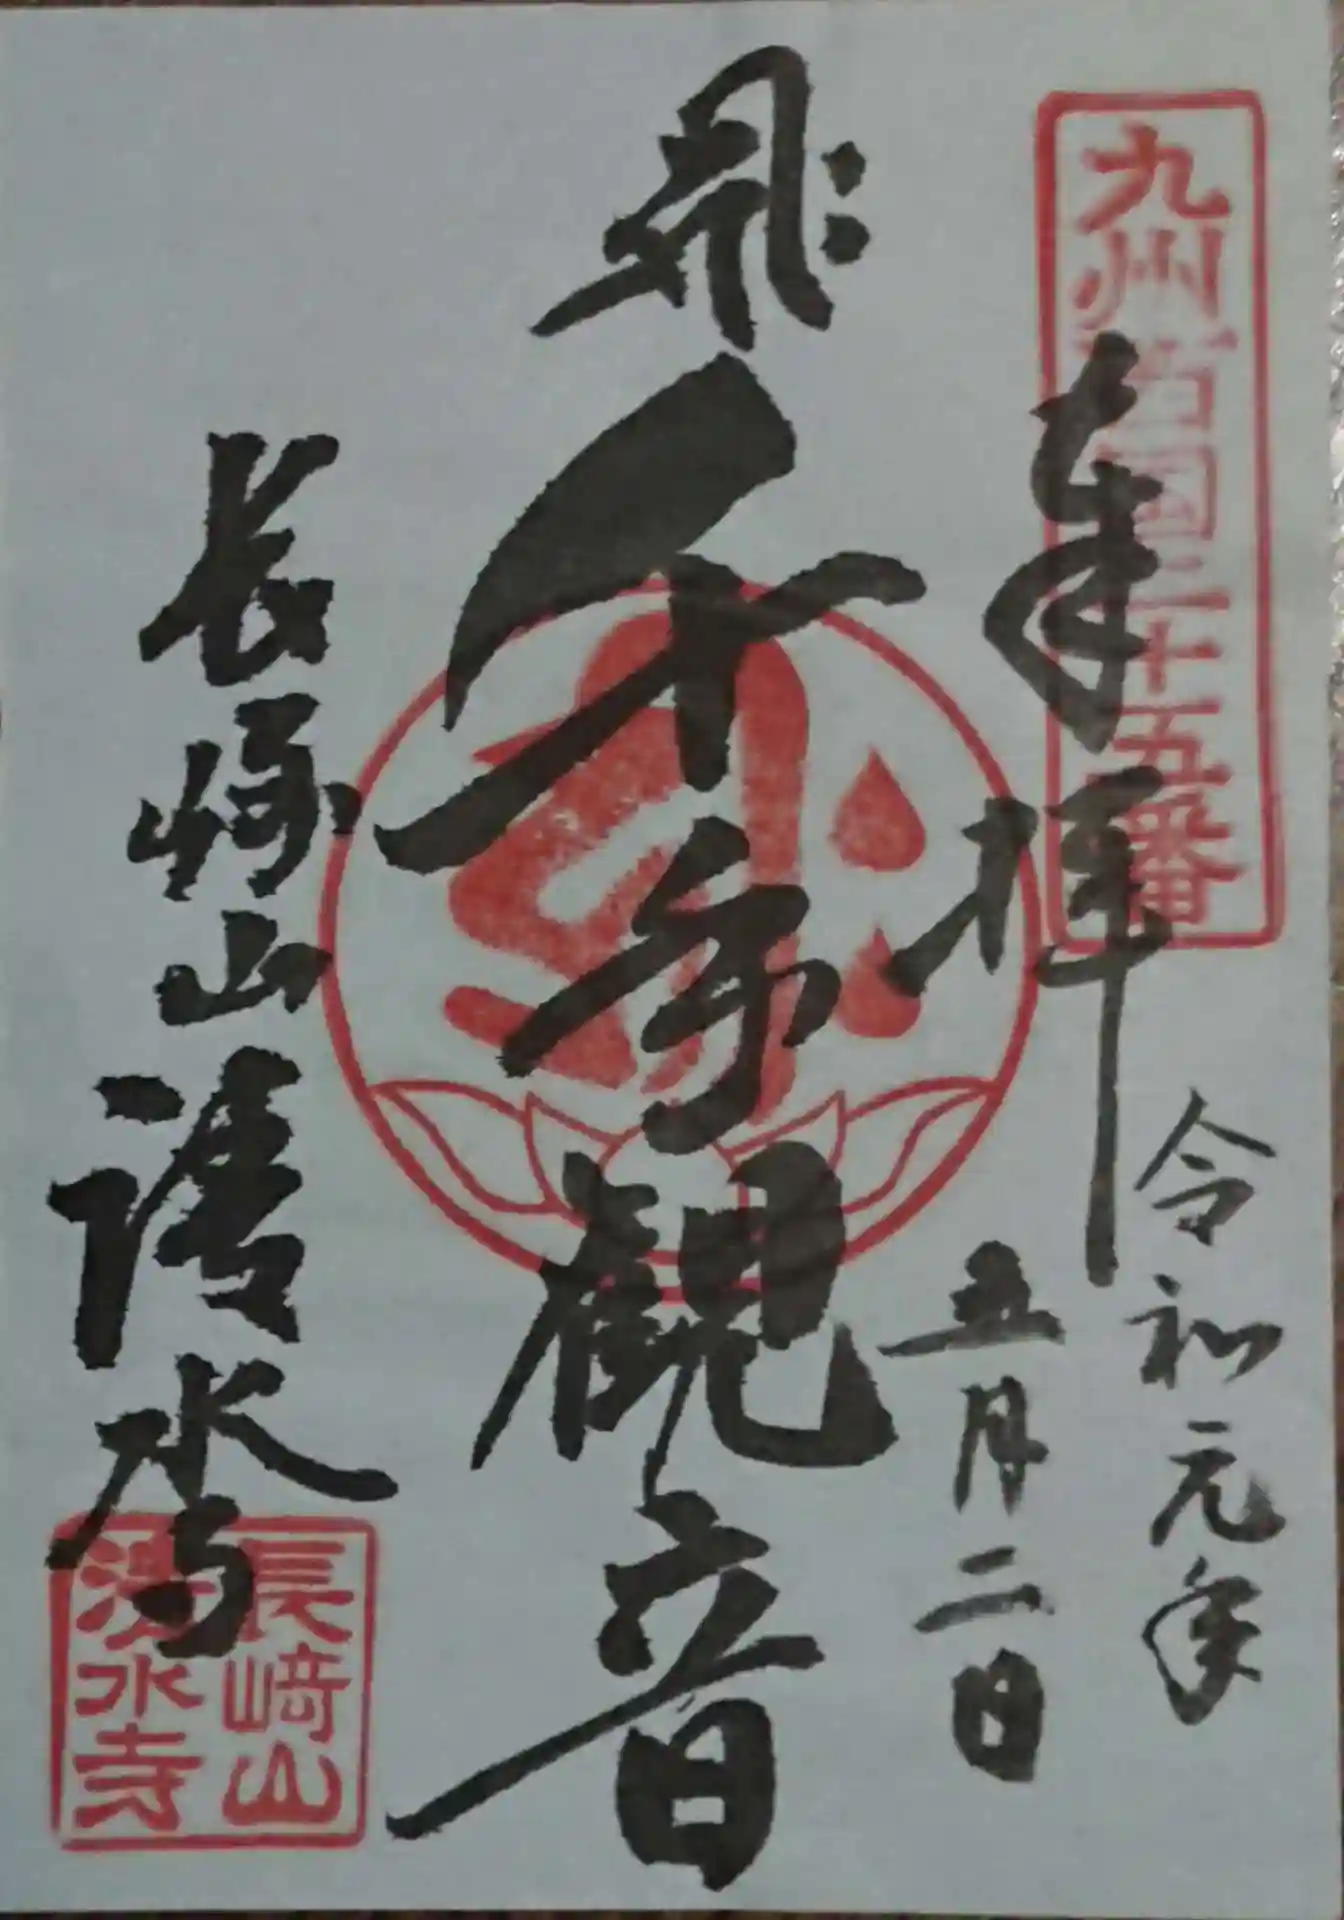 九州西国二十五番
奉拝
令和元年
五月二日
千手観音
長崎山清水寺
長﨑山
清水寺